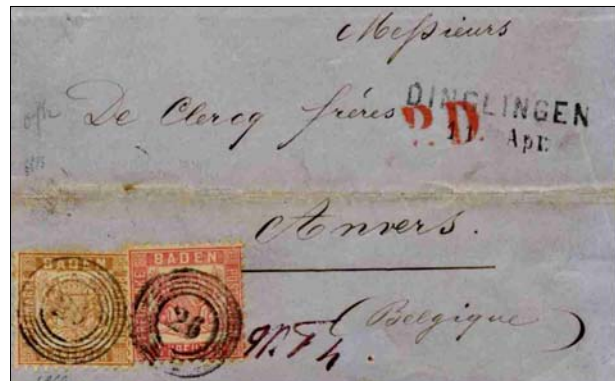 Meſsieurs
De Clercq frères
DINGLINGEN
P.D.
11 Apr.
Anvers.
(Belgique)
BADEN
BADEN
26
26